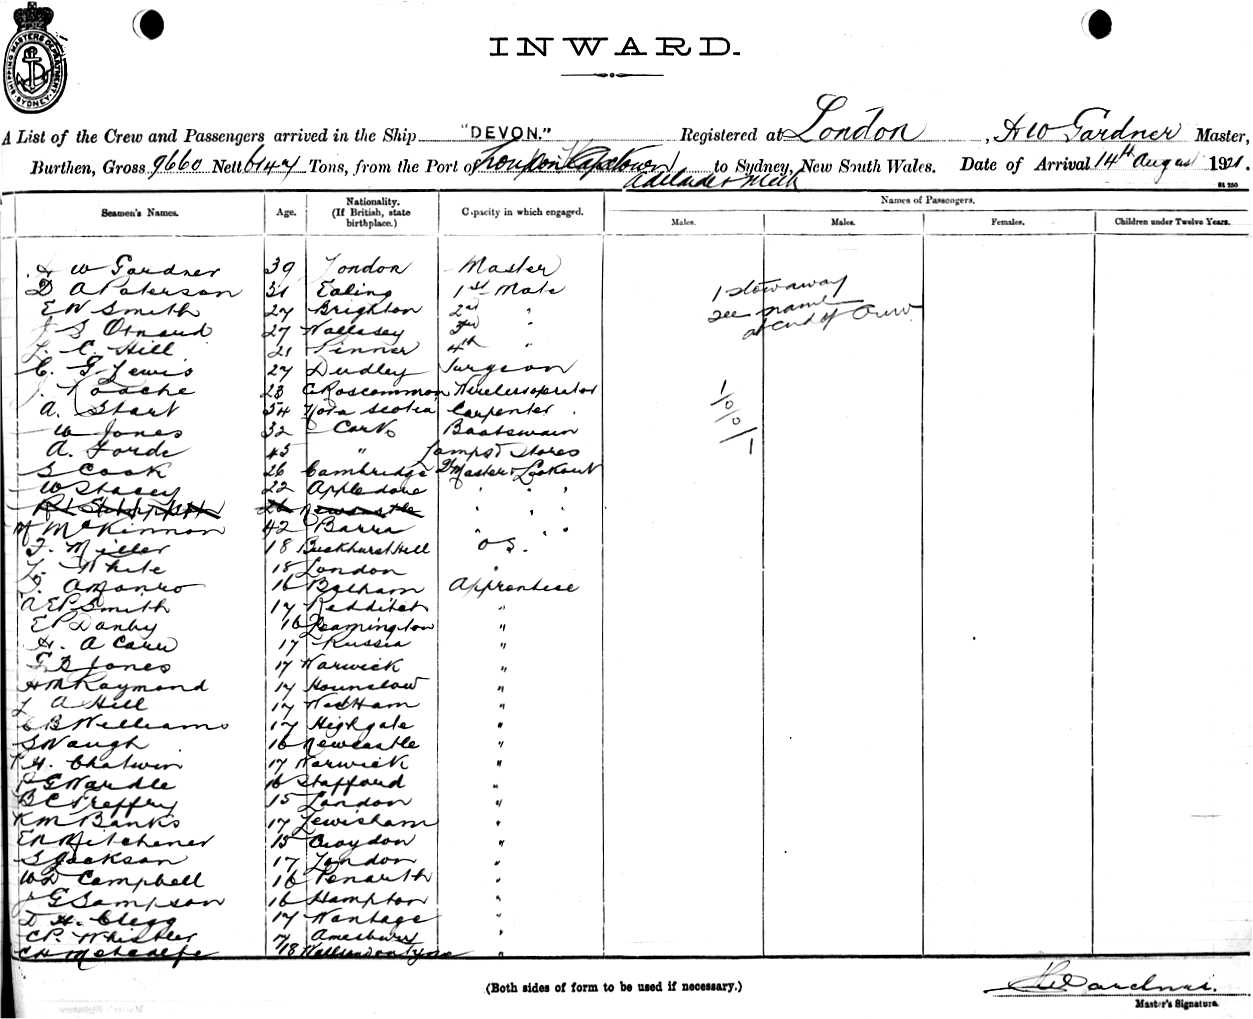 SHIPPING MASTERS DEPARTMENT SYDNEY
INWARD.
A List of the Crew and Passengers arrived in the Ship "DEVON." Registered at London, H W Gardner Master,
Burthen, Gross 9660 Nett 6147 Tons, from the Port of London Capetown to Sydney, New South Wales. Date of Arrival 14th August 1921.
Adelaide & Melb
Seamen's Names. Age. Nationality. (If British, state birthplace.) Capacity in which engaged. Names of Passengers.
Males. Males. Females. Children under Twelve Years.
H W Gardner 39 London Master
D A Paterson 31 Ealing 1st Mate
1 stowaway
E W Smith 27 Brighton 2nd "
see name
at end of Crew
J S 27 Wallasey 3rd "
L. C. Hill 21 Pinner 4th "
C. G Lewis 27 Dudley Surgeon
J. Roache 23 C Roscommon Wireless operator
A. Start 54 Nova Scotia Carpenter.
W Jones 32 Cork Boatswain
1/0/0/1
A. Forde 45 " Lamps & Stores
S Cook 26 Cambridge Q Master & Lookout
W Stacey 22 Appledore " " "
26 Newcastle " " "
M McKinnon 42 Barra " " "
F. Miller 18 Buckhurst Hill O S.
L. White 18 London "
J. A Monro 16 Balham Apprentice
A E P Smith 17 Redditch "
E P Danby 16 Leamington "
H. A Carr 17 Russia "
G B Jones 17 Warwick "
H M Raymond 17 Hounslow "
L A Hill 17 West Ham "
C B Williams 17 Highgate "
S Waugh 16 Newcastle "
H. Chatwin 17 Warwick "
G Wardle 16 Stafford "
B C Treffry 15 London "
K M Banks 17 Lewisham "
E N Mitchener 15 Croydon "
S Jackson 17 London "
W D Campbell 16 Penarth "
J G Sampson 16 Hampton "
D H. Clegg 17 Wantage "
C P. Whistler 17 Amesbury "
C H Metcalfe 18 Wallsend on Tyne "
(Both sides of form to be used if necessary.)
H W Gardner.
Master's Signature.